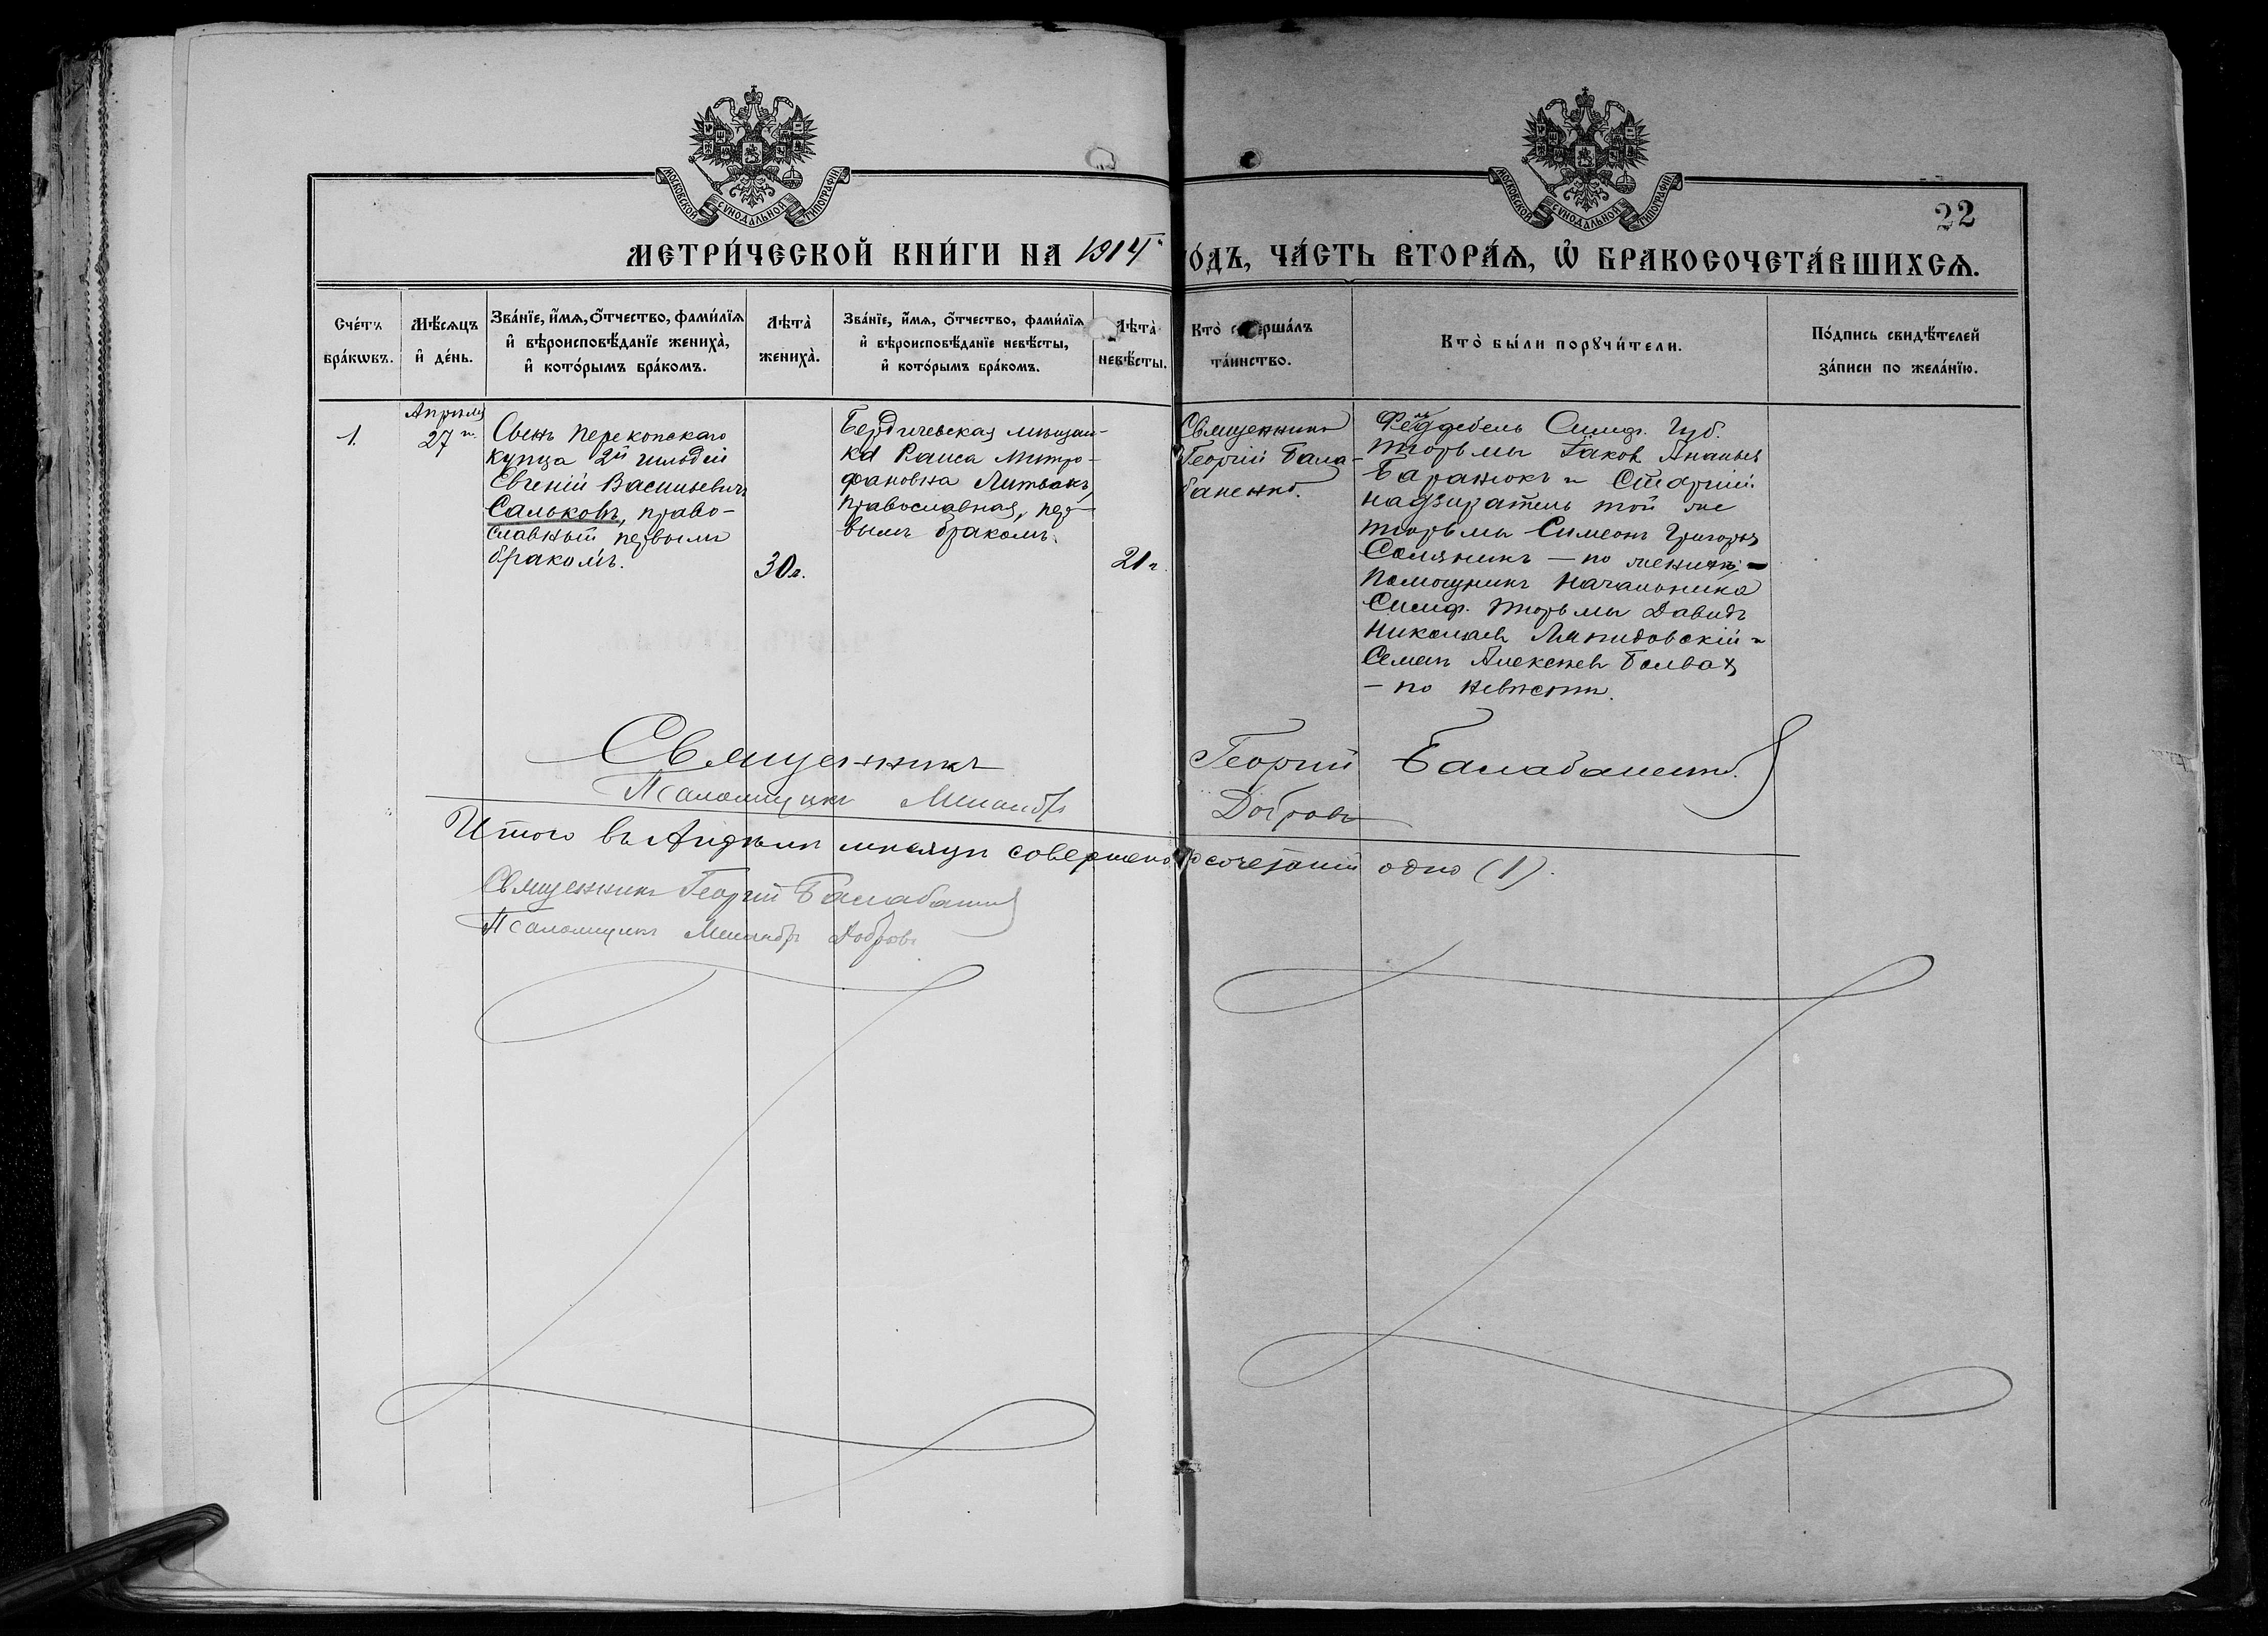 МОСКОВСКОЙ СѴНОДАЛЬНОЙ ТИПОГРАФІИ
МОСКОВСКОЙ СѴНОДАЛЬНОЙ ТИПОГРАФІИ
22
МЕТРИ́ЧЕСКОЙ КНИ́ГИ НА 1914 ГО́ДЪ, ЧА́СТЬ ВТОРА́Ѧ, Ѡ҆ БРАКОСОЧЕТА́ВШИХСѦ.
Сче́тъ
бра́кѡвъ.
Мѣ́сѧцъ
и҆ де́нь.
Зва́нїе, и҆́мѧ, ѻ҆́тчество, фами́лїѧ
и҆ вѣроисповѣ́данїе жениха̀,
и҆ кото́рымъ бра́комъ.
Лѣта̀
жениха̀.
Зва́нїе, и҆́мѧ, ѻ҆́тчество, фами́лїѧ
и҆ вѣроисповѣ́данїе невѣ́сты,
и҆ кото́рымъ бра́комъ.
Лѣта̀
невѣ́сты.
Кто̀ соверша́лъ
та́инство.
Кто̀ бы́ли порꙋчи́тели.
По́дпись свидѣ́телей
за́писи по жела́нїю.
1.
Апрѣля
27
Сынъ Перекопскаго
купца 2й гильдіи
Евгеній Васильевичъ
Сальковъ, право-
славный первымъ
бракомъ.
30 л.
Бердичевская мѣщан-
ка Раиса Митро-
фановна Литвакъ,
православная, пер-
вымъ бракомъ.
21 г.
Священникъ
Георгій Бала-
баненко.
Фельдфебель Симф. Губ.
тюрьмы Іаков Ананьев
Баранюкъ и Старшій
надзиратель той же
тюрьмы Симеонъ Григорьев
Соляникъ — по женихѣ; —
Помощникъ Начальника
Симф. тюрьмы Давидъ
Николаевъ Ляпидовскій и
Семенъ Алексѣевъ
— по невѣстѣ.
Священникъ Георгій Балабаненко.
Псаломщикъ Добровъ
Итого въ Апрѣлѣ мѣсяцѣ совершено сочетаній одно (1).
Священникъ Георгій Балабаненко
Псаломщикъ Добровъ